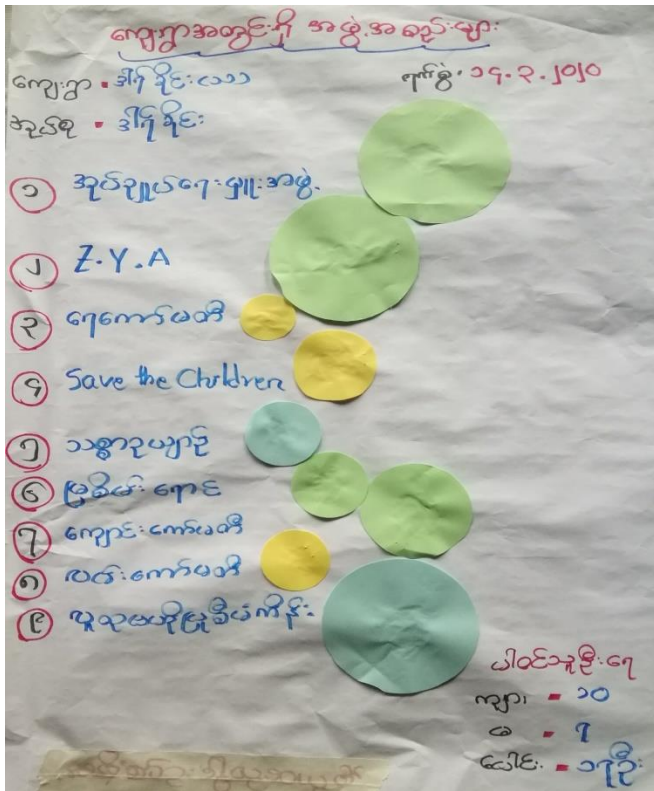 ကျေးရွာအတွင်းရှိ အဖွဲ့အစည်းများ
ကျေးရွာ - ဒါန်ခိုင်း
ရက်စွဲ - ၁၄.၃.၂၀၂၀
အုပ်စု - ဒါန်ခိုင်း
၁ အုပ်ချုပ်ရေးမှူးအဖွဲ့
၂ Z.Y.A
၃ ရေကော်မတီ
၄ Save the Children
၅ သစ္စာဥယျာဉ်
၆ မြစိမ်းရောင်
၇ ကျောင်းကော်မတီ
၈ လမ်းကော်မတီ
၉ လူထုဗဟိုပြုစီမံကိန်း
ပါဝင်သူဦးရေ
ကျား - ၁၀
မ - ၇
ပေါင်း - ၁၇ဦး